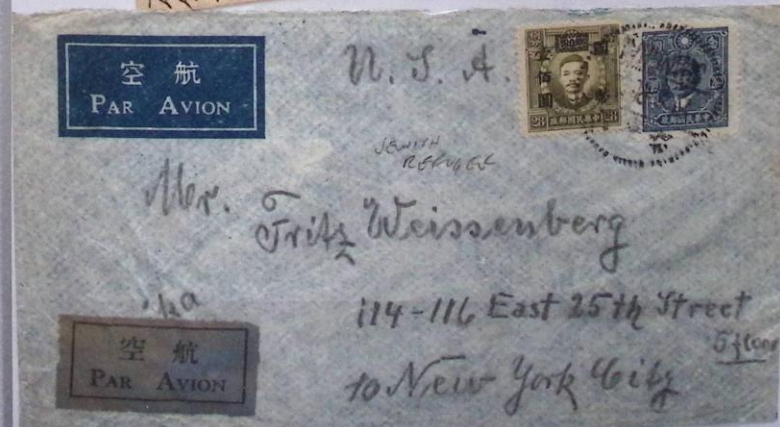 空 航
PAR AVION
U. S. A.
壹
佰
圓
28 中華民國郵政 28
中華民國郵政
JEWISH
REFUGEE
Mr. Fritz Weissenberg
114-116 East 25th Street
5 floor
10 New York City
空 航
PAR AVION